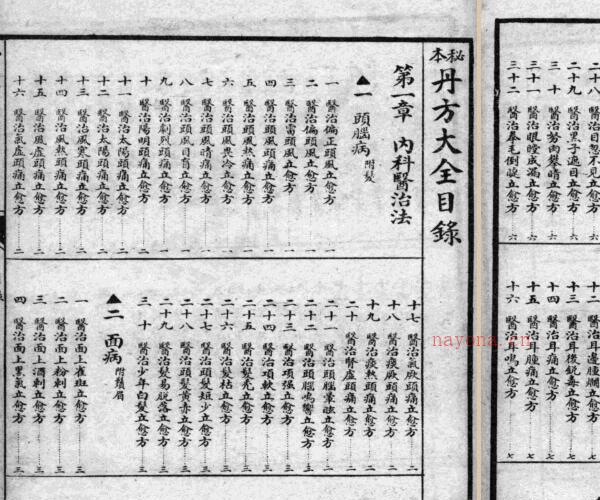 秘本丹方大全目錄
第一章 內科醫治法
▲一 頭腦病 附髮
一 醫治偏正頭風立愈方 一
二 醫治偏頭風立愈方 一
三 醫治雷頭風立愈方 一
四 醫治頭風頭痛立愈方 一
五 醫治頭風熱痛立愈方 一
六 醫治頭風畏冷立愈方 一
七 醫治頭風晴痛立愈方 一
八 醫治頭風目昏立愈方 一
九 醫治劇烈頭痛立愈方 一
十 醫治陽明頭痛立愈方 二
十一 醫治太陽頭痛立愈方 二
十二 醫治太陽頭痛立愈方 二
十三 醫治風寒頭痛立愈方 二
十四 醫治風熱頭痛立愈方 二
十五 醫治風虛頭痛立愈方 二
十六 醫治氣虛頭痛立愈方 二
十七 醫治氣厥頭痛立愈方 二
十八 醫治痰厥頭痛立愈方 二
十九 醫治痰熱頭痛立愈方 二
二十 醫治腎虛頭痛立愈方 二
二十一 醫治頭腦暈眩立愈方 三
二十二 醫治頭腦鳴響立愈方 三
二十三 醫治項强立愈方 三
二十四 醫治項軟立愈方 三
二十五 醫治髮禿立愈方 三
二十六 醫治髮枯立愈方 三
二十七 醫治頭髮短少立愈方 三
二十八 醫治頭髮黃赤立愈方 三
二十九 醫治頭髮易脫落立愈方 三
三十 醫治少年白髮立愈方 三
▲二 面病 附鬚眉
一 醫治面上雀斑立愈方 三
二 醫治面上粉刺立愈方 三
三 醫治面上酒刺立愈方 三
四 醫治面上黑氣立愈方 三
二十八 醫治目忽不見立愈方 六
二十九 醫治黑子遮目立愈方 六
三十 醫治努肉攀睛立愈方 六
三十一 醫治眼瞠成漏立愈方 六
三十二 醫治拳毛倒睫立愈方 六
十二 醫治耳邊腫爛立愈方 七
十三 醫治耳後銳毒立愈方 七
十四 醫治耳痛立愈方 七
十五 醫治耳腫痛立愈方 七
十六 醫治耳鳴立愈方 七
nayona.cn